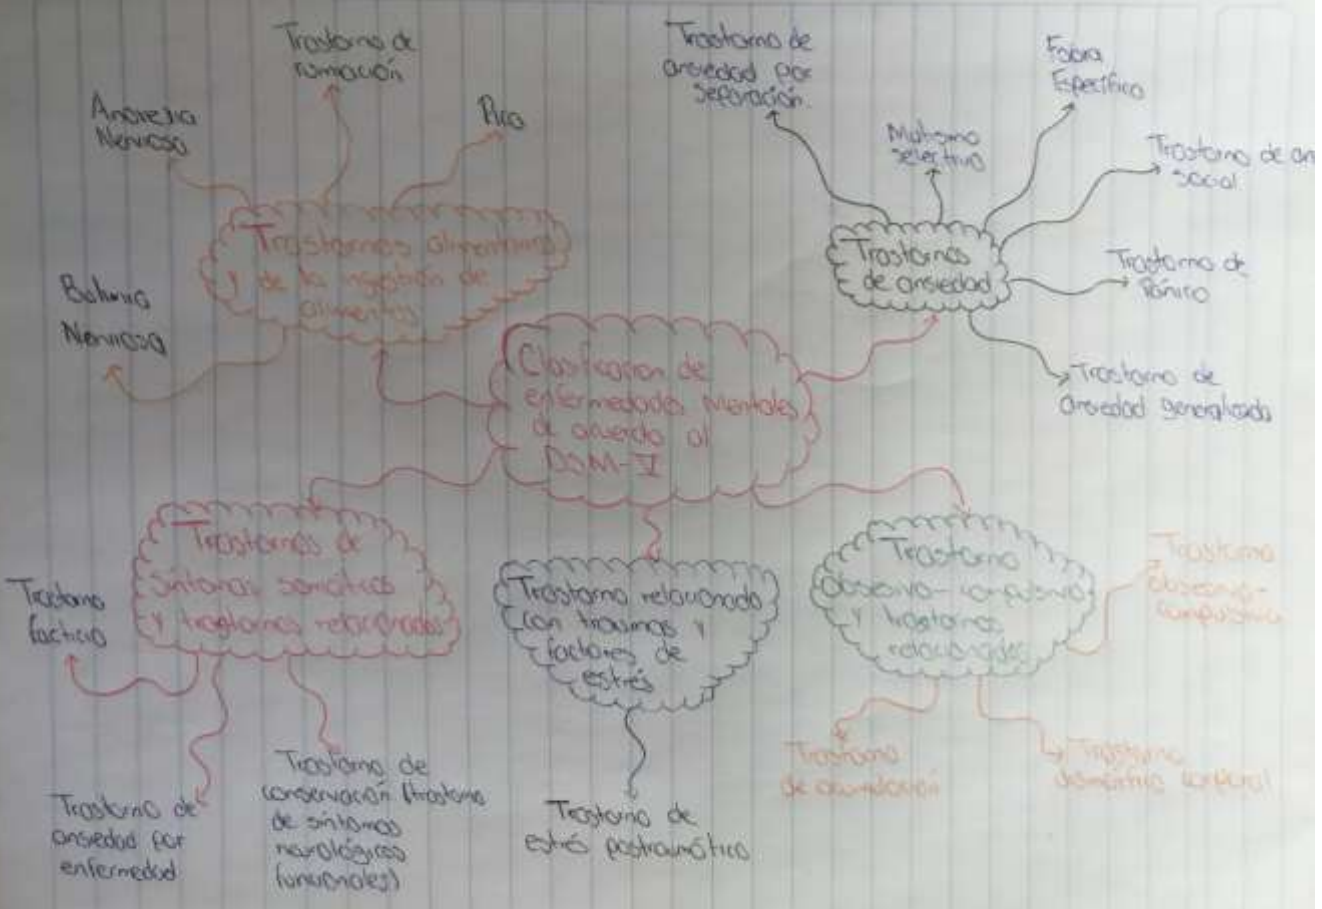 Trastorno de
rumiación
Anorexia
Nerviosa
Pica
Bulimia
Nerviosa
Trastornos alimentarios
y de la ingestión de
alimentos
Trastorno de
ansiedad por
separación.
Mutismo
selectivo
Fobia
Específica
Trastorno de an
social
Trastornos
de ansiedad
Trastorno de
Pánico
Trastorno de
ansiedad generalizada
Clasificación de
enfermedades Mentales
de acuerdo al
DSM-V
Trastornos de
síntomas somáticos
y trastornos relacionados
Trastorno
facticio
Trastorno de
ansiedad por
enfermedad
Trastorno de
conservación (trastorno
de síntomas
neurológicos
funcionales)
Trastorno relacionado
con traumas y
factores de
estrés
Trastorno de
estrés postraumático
Trastorno
Obsesivo-compulsivo
y trastornos
relacionados
Trastorno
obsesivo-
compulsivo
Trastorno
de acumulación
Trastorno
dismórfico corporal